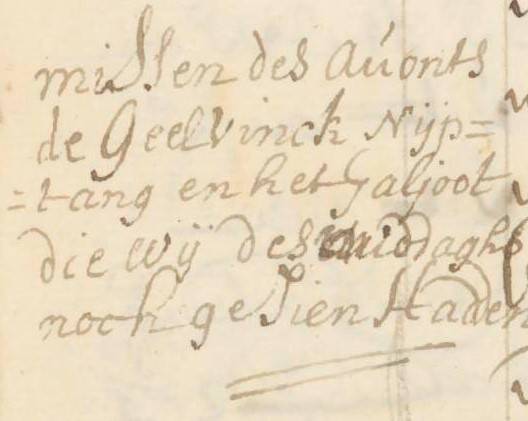 missen des avonts
de Geelvinck Nijp=
=tang en het Galjoot
die wij des midдaghs
noch gesien Haden